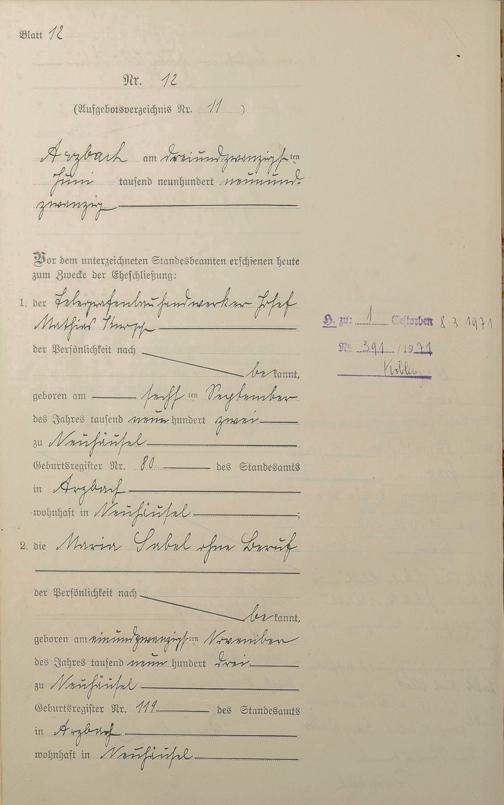 Blatt 12
Nr. 12
(Aufgebotsverzeichnis Nr. 11 )
Arzbach am dreiundzwanzigsten
Juni tausend neunhundert neunund-
zwanzig
Vor dem unterzeichneten Standesbeamten erschienen heute
zum Zwecke der Eheschließung:
1. der Telegrafenbauhandwerker Josef
Mathias
der Persönlichkeit nach
bekannt,
geboren am sechsten September
des Jahres tausend neunhundert zwei
zu Neuhäusel
Geburtsregister Nr. 80 des Standesamts
in Arzbach
wohnhaft in Neuhäusel ;
2. die Maria Sabel ohne Beruf
der Persönlichkeit nach
bekannt,
geboren am einundzwanzigsten November
des Jahres tausend neunhundert drei
zu Neuhäusel
Geburtsregister Nr. 119 des Standesamts
in Arzbach
wohnhaft in Neuhäusel
H. zu: 1 Gestorben 8 3 1971
Nr. 391 / 1971